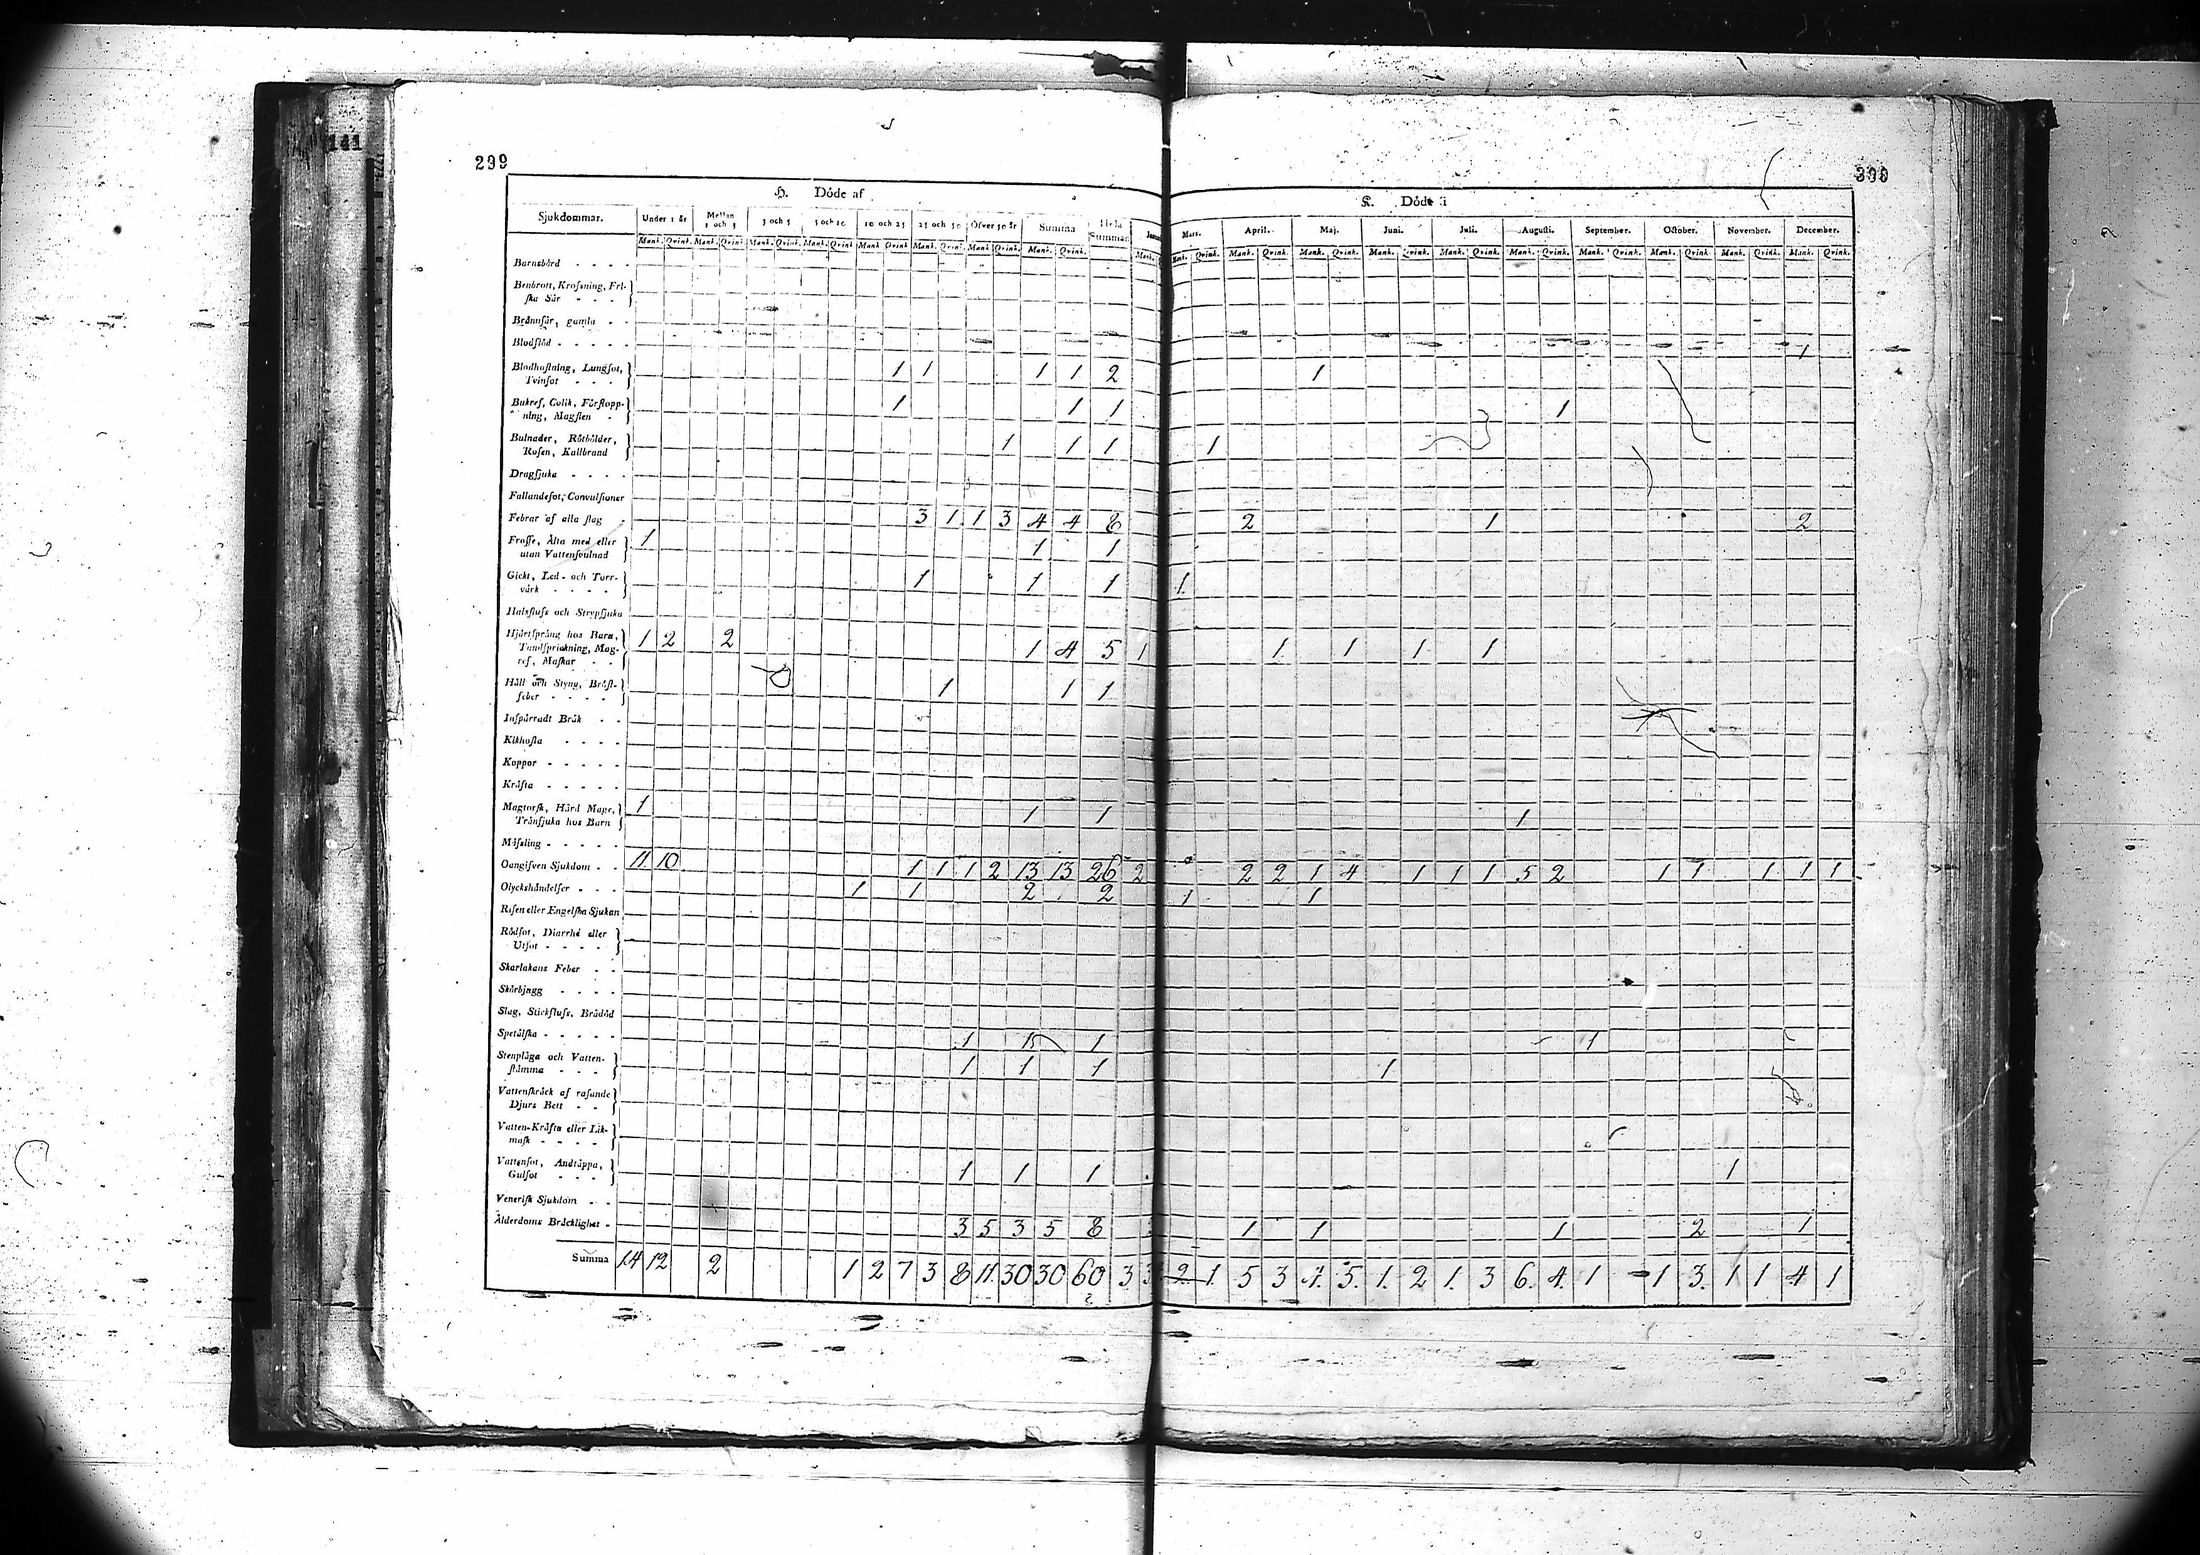 141
299
300
H. Döde af
K. Döde i
Sjukdommar. Under 1 år Mellan 1 och 3 3 och 5 5 och 10 10 och 25 25 och 50 Öfver 50 år Summa Hela Summan
Mars. April. Maj. Juni. Juli. Augusti. September. October. November. December.
Mank. Qvink. Mank. Qvink. Mank. Qvink. Mank. Qvink. Mank. Qvink. Mank. Qvink. Mank. Qvink. Mank. Qvink. Mank.
Mank. Qvink. Mank. Qvink. Mank. Qvink. Mank. Qvink. Mank. Qvink. Mank. Qvink. Mank. Qvink. Mank. Qvink. Mank. Qvink. Mank. Qvink.
Barnsbörd
Benbrott, Krossning, Friska Sår
Brännsår, gamla
Blodflöd
1
Blodhostning, Lungsot, Tvinsot 1 1 1 1 2 1
Bukref, Colik, Förstoppning, Magsten 1 1 1 1
Bulnader, Rötbölder, Rosen, Kallbrand 1 1 1 1
Dragsjuka
Fallandesot, Convulsioner
Febrar af alla slag 3 1 1 3 4 4 8 2 1 2
Frosse, Älta med eller utan Vattensvulnad 1 1 1
Gickt, Led- och Torrvärk 1 1 1 1
Halsfluss och Strypsjuka
Hjärtsprång hos Barn, Tandsprickning, Magref, Maskar 1 2 2 1 4 5 1 1 1 1 1
Håll och Styng, Bröstfeber 1 1 1
Inspärradt Bråk
Kikhosta
Koppor
Kräfta
Magtorsk, Hård Mage, Tränsjuka hos Barn 1 1 1 1
Mässling
Oangifven Sjukdom 11 10 1 1 1 2 13 13 26 2 2 2 1 4 1 1 1 5 2 1 1 1 1 1
Olyckshändelser 1 1 2 2 1 1
Risen eller Engelska Sjukan
Rödsot, Diarrhé eller Utsot
Skarlakans Feber
Skörbjugg
Slag, Stickfluss, Brådöd
Spetälska 1 1 1 1
Stenplåga och Vattenstämma 1 1 1 1
Vattenskräck af rasande Djurs Bett
Vatten-Kräfta eller Likmask
Vattensot, Andtäppa, Gulsot 1 1 1 1
Venerisk Sjukdom
Ålderdoms Bräcklighet 3 5 3 5 8 1 1 1 2 1
Summa 14 12 2 1 2 7 3 8 11 30 30 60 3 3 2 1 5 3 4 5 1 2 1 3 6 4 1 1 3 1 1 4 1